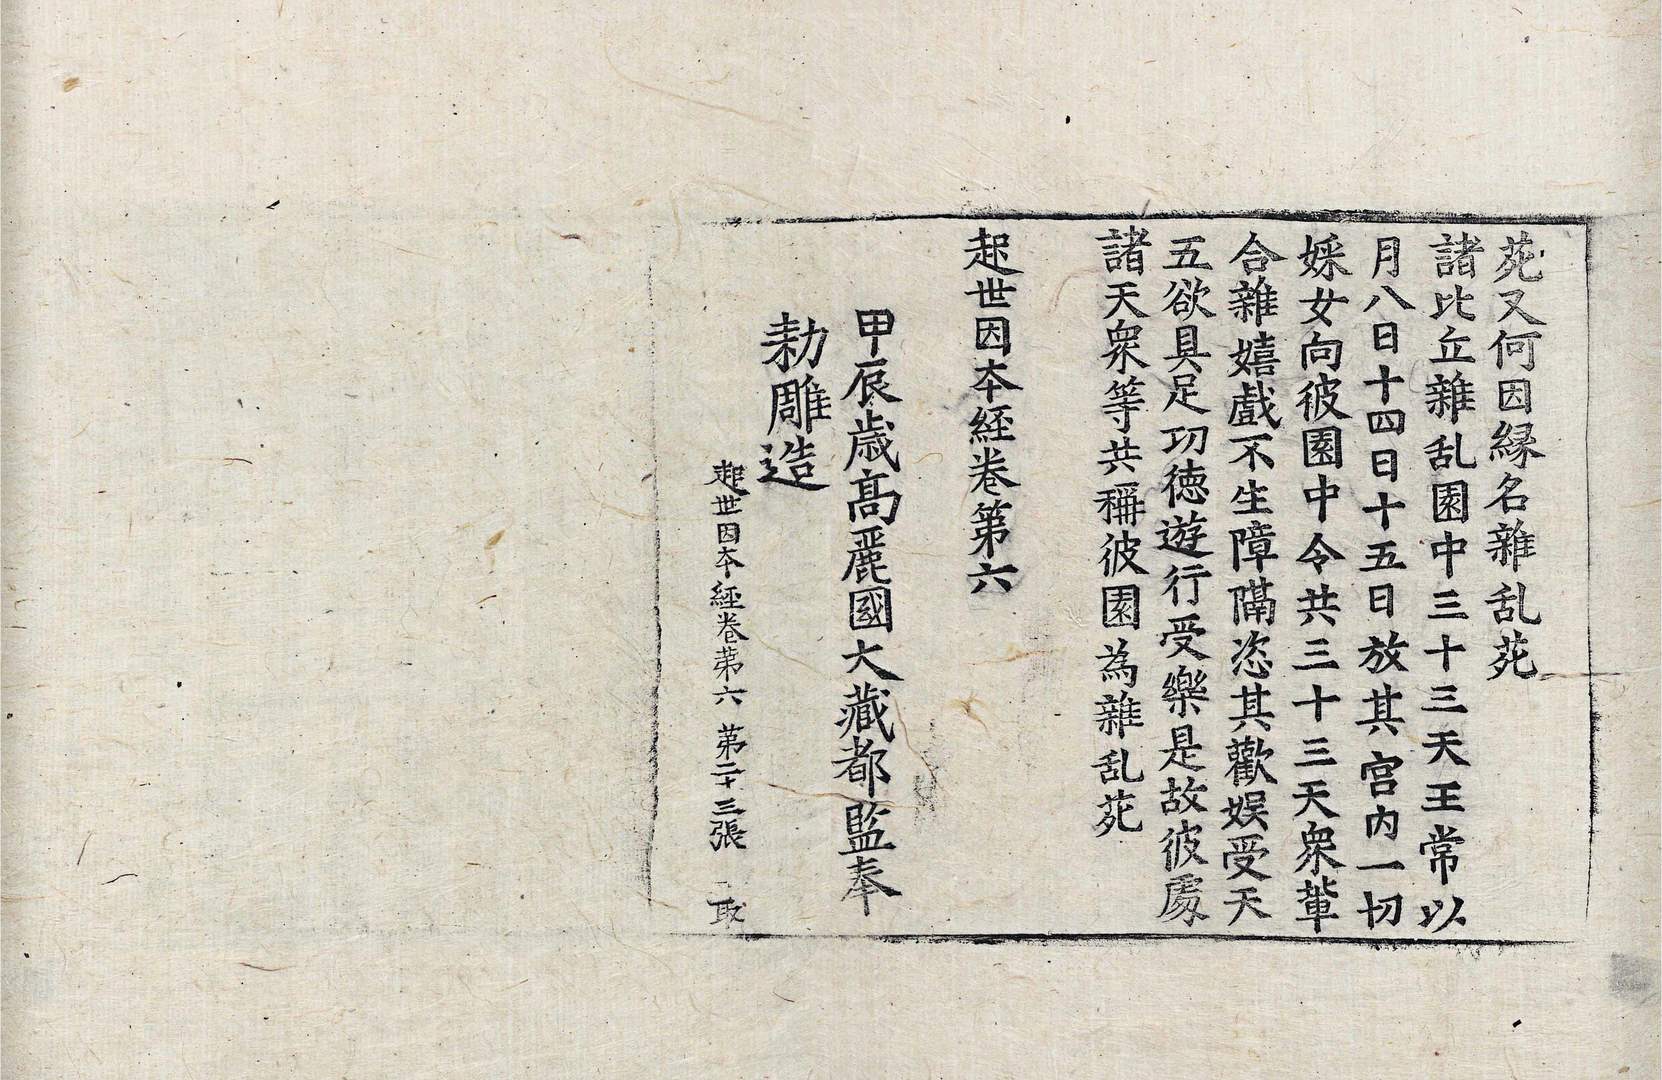 苑又何因縁名雜乱苑
諸比丘雜乱園中三十三天王常以
月八日十四日十五日放其宮内一切
婇女向彼園中令共三十三天衆輩
合雜嬉戲不生障隔恣其歡娱受天
五欲具足功徳遊行受樂是故彼處
諸天衆等共稱彼園為雜乱苑
起世因本經卷第六
甲辰歳髙麗國大藏都監奉
勅雕造
起世因本經卷苐六 苐二十三張 取